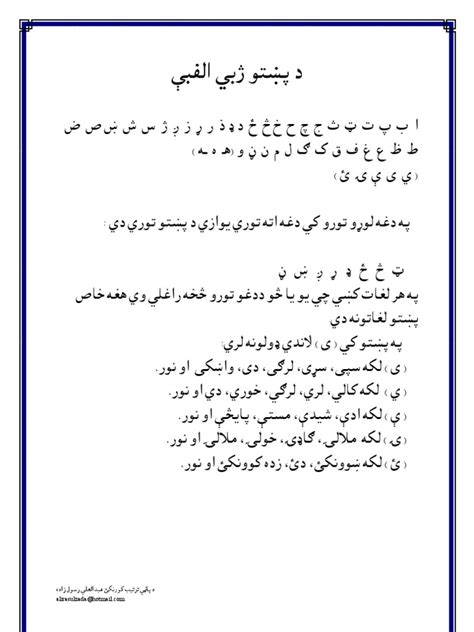 د پښتو ژبي الفبې
ا ب پ ت ټ ث ج چ ح خ څ ځ د ډ ذ ر ړ ز ږ ژ س ش ښ ص ض
ط ظ ع غ ف ق ک ګ ل م ن ڼ و (هـ ه ـه )
( ي ی ې ۍ ئ )
په دغه لوړو تورو کي دغه اته توري يوازي د پښتو توري دي :
ټ څ ځ ډ ړ ږ ښ ڼ
په هر لغات کښي چي يو يا څو ددغو تورو څخه راغلي وي هغه خاص
پښتو لغاتونه دي.
په پښتو کي ( ی ) لاندي ډولونه لري:
( ی ) لکه سپی، سړی، لرګی، دی، واښکی او نور.
( ي ) لکه کالي، لري، لرګي، خوري، دي او نور.
( ې ) لکه ادې، شيدې، مستې، پايڅې او نور.
( ۍ ) لکه ملالۍ، ګاډۍ، خولۍ، ملالۍ او نور.
( ئ ) لکه ښوونکئ، دئ، زده کوونکئ او نور.
د پاڼي ترتيب کوونکئ عبدالعلي رسول زاده
alirasulzada@hotmail.com